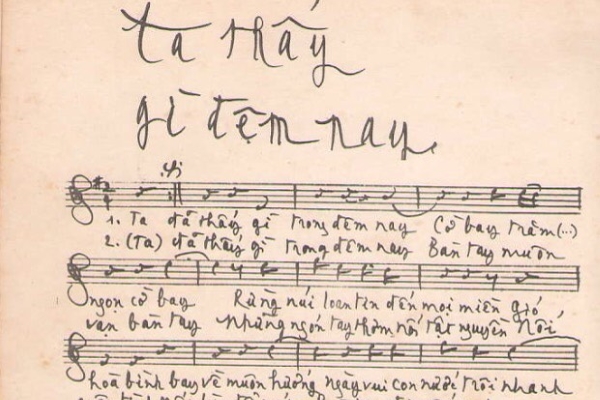 ta thấy
gì đêm nay.
1. Ta đã thấy gì trong đêm nay Cờ bay trăm (...)
2. (Ta) đã thấy gì trong đêm nay Bàn tay muôn
ngọn cờ bay Rừng núi loan tin đến mọi miền gió
vạn bàn tay Những ngón tay thơm nối tật nguyền Nối
hoà bình bay về muôn hướng ngày vui con nước trôi nhanh